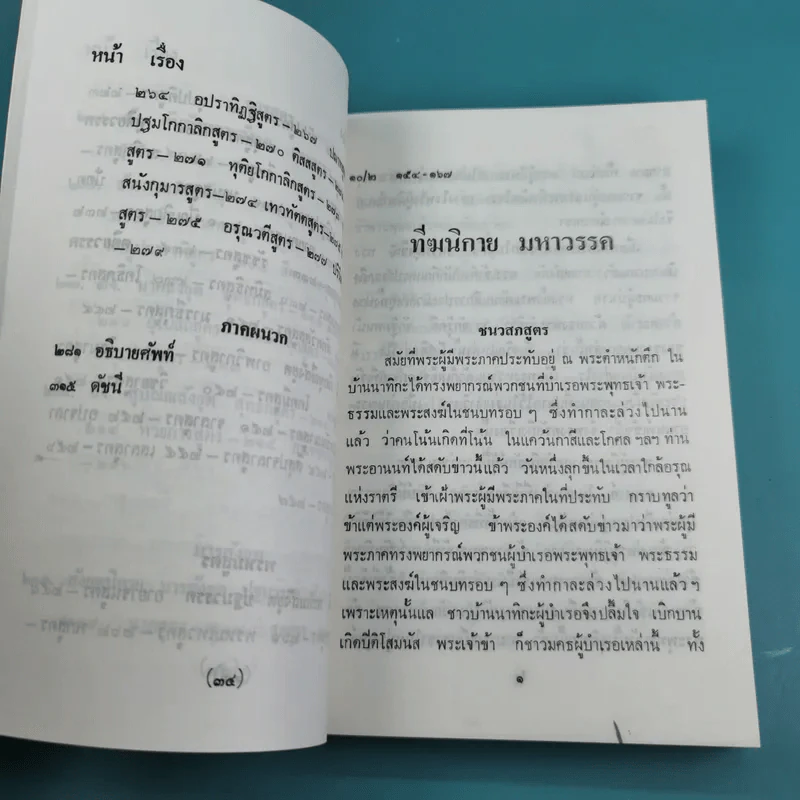 หน้า เรื่อง
๒๖๔ อปราทิฏฐิสูตร – ๒๖๗
ปฐมโกกาลิกสูตร – ๒๗๐ ติสสสูตร –
สูตร – ๒๗๑ ทุติยโกกาลิกสูตร – ๒๗๓
สนังกุมารสูตร – ๒๗๔ เทวทัตตสูตร –
สูตร – ๒๗๕ อรุณวตีสูตร – ๒๗๗
– ๒๗๙
ภาคผนวก
๒๘๑ อธิบายศัพท์
๓๑๕ ดัชนี
(๓๔)
๑๐/๒ ๑๕๔-๑๖๗
ทีฆนิกาย มหาวรรค
ชนวสภสูตร
สมัยที่พระผู้มีพระภาคประทับอยู่ ณ พระตำหนักตึก ใน
บ้านนาทิกะได้ทรงพยากรณ์พวกชนที่บำเรอพระพุทธเจ้า พระ-
ธรรมและพระสงฆ์ในชนบทรอบ ๆ ซึ่งทำกาละล่วงไปนาน
แล้ว ว่าคนโน้นเกิดที่โน้น ในแคว้นกาสีและโกศล ฯลฯ ท่าน
พระอานนท์ได้สดับข่าวนี้แล้ว วันหนึ่งลุกขึ้นในเวลาใกล้อรุณ
แห่งราตรี เข้าเฝ้าพระผู้มีพระภาคในที่ประทับ กราบทูลว่า
ข้าแต่พระองค์ผู้เจริญ ข้าพระองค์ได้สดับข่าวมาว่าพระผู้มี
พระภาคทรงพยากรณ์พวกชนผู้บำเรอพระพุทธเจ้า พระธรรม
และพระสงฆ์ในชนบทรอบ ๆ ซึ่งทำกาละล่วงไปนานแล้ว ฯ
เพราะเหตุนั้นแล ชาวบ้านนาทิกะผู้บำเรอจึงปลื้มใจ เบิกบาน
เกิดปีติโสมนัส พระเจ้าข้า ก็ชาวมคธผู้บำเรอเหล่านี้ ทั้ง
๑